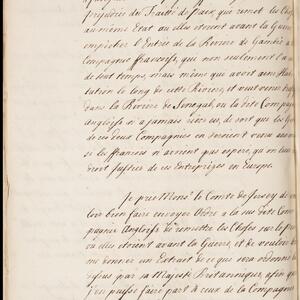 préjudice du Traité de Paix qui remet les Choses
au même Etat où elles étoient avant la Guerre
empêcher l'Entrée de la Riviere de Gambie à
Compagnie francoise, qui non seulement l'a
de tout temps, mais même qui avoit une Habi
tation le long de cette Riviere, et veut venir
dans la Riviere de Senegal, où la dite Compagnie
Angloise n'a jamais été, de sorte que les
de ces deux Compagnies en viendront
si les francois n'avoient pas esperé, qu'on leur
droit Justice de ces Entreprizes en Europe.
Je prie Monsr. le Comte de Jersey de vou
loir bien faire envoyer Ordre à la susdite Com
pagnie Angloise de remettre les Choses sur le pied
où elles étoient avant la Guerre, et de vouloir
me donner un Extrait de ce que sera ordonné
dessus par sa Majesté Britannique, afin que
j'en puisse faire part à ceux de la Compagnie